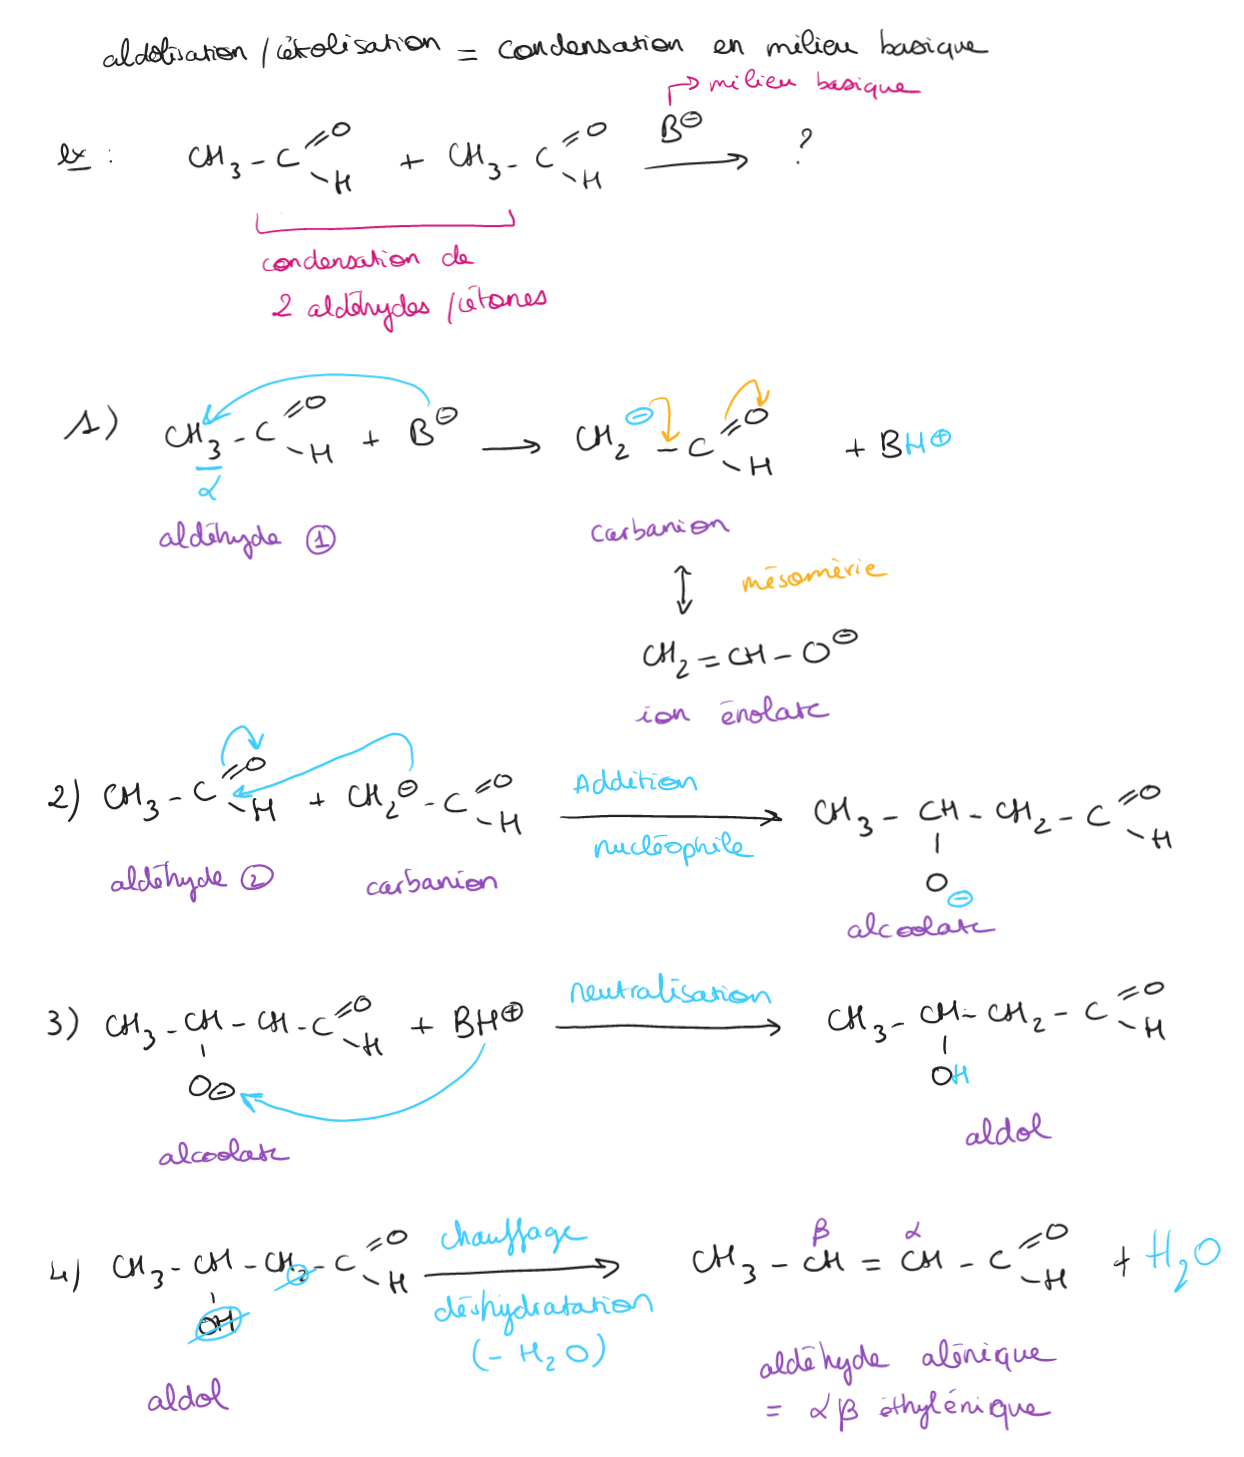 aldolisation / cétolisation = condensation en milieu basique
→ milieu basique
ex : CH₃ - C =O - H + CH₃ - C =O - H B⊖ → ?
condensation de
2 aldéhydes / cétones
1) CH₃ - C =O - H + B⊖ → CH₂⊖ - C =O - H + BH⊕
α
aldéhyde ①
carbanion
↕ mésomérie
CH₂ = CH - O⊖
ion énolate
2) CH₃ - C =O - H + CH₂⊖ - C =O - H Addition nucléophile → CH₃ - CH - CH₂ - C =O - H
O⊖
aldéhyde ② carbanion
alcoolate
3) CH₃ - CH - CH - C =O - H + BH⊕ neutralisation → CH₃ - CH - CH₂ - C =O - H
O⊖ OH
alcoolate aldol
β α
4) CH₃ - CH - CH₂ - C =O - H chauffage → CH₃ - CH = CH - C =O - H + H₂O
OH déshydratation
(- H₂O)
aldol
aldéhyde alénique
= αβ éthylénique